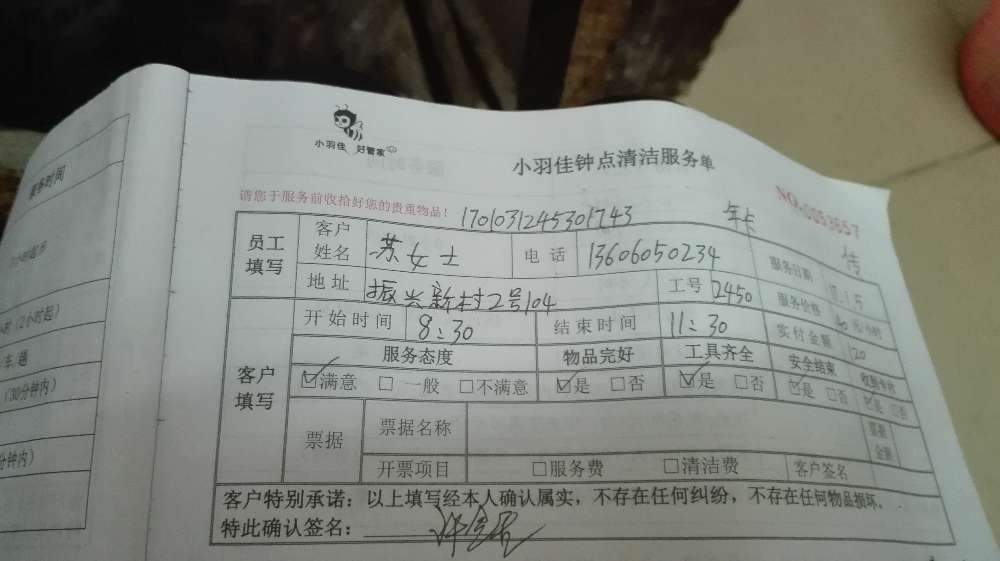 小羽佳 好管家
小羽佳钟点清洁服务单
请您于服务前收拾好您的贵重物品！ 1701031245301743 年卡 NO.0053657
员工填写 客户姓名 苏女士 电话 13606050234 服务日期 17.1.5
地址 振兴新村2号104 工号 2450 服务价格 元/小时
客户填写 开始时间 8:30 结束时间 11:30 实付金额 120
服务态度 物品完好 工具齐全 安全结束
☑满意 □一般 □不满意 ☑是 □否 ☑是 □否 ☑是 □否 ☑是 □否
票据 票据名称 票据金额
开票项目 □服务费 □清洁费 客户签名
客户特别承诺：以上填写经本人确认属实，不存在任何纠纷，不存在任何物品损坏。
特此确认签名：
服务时间
(2小时起)
车趟
(30分钟内)
分钟内)